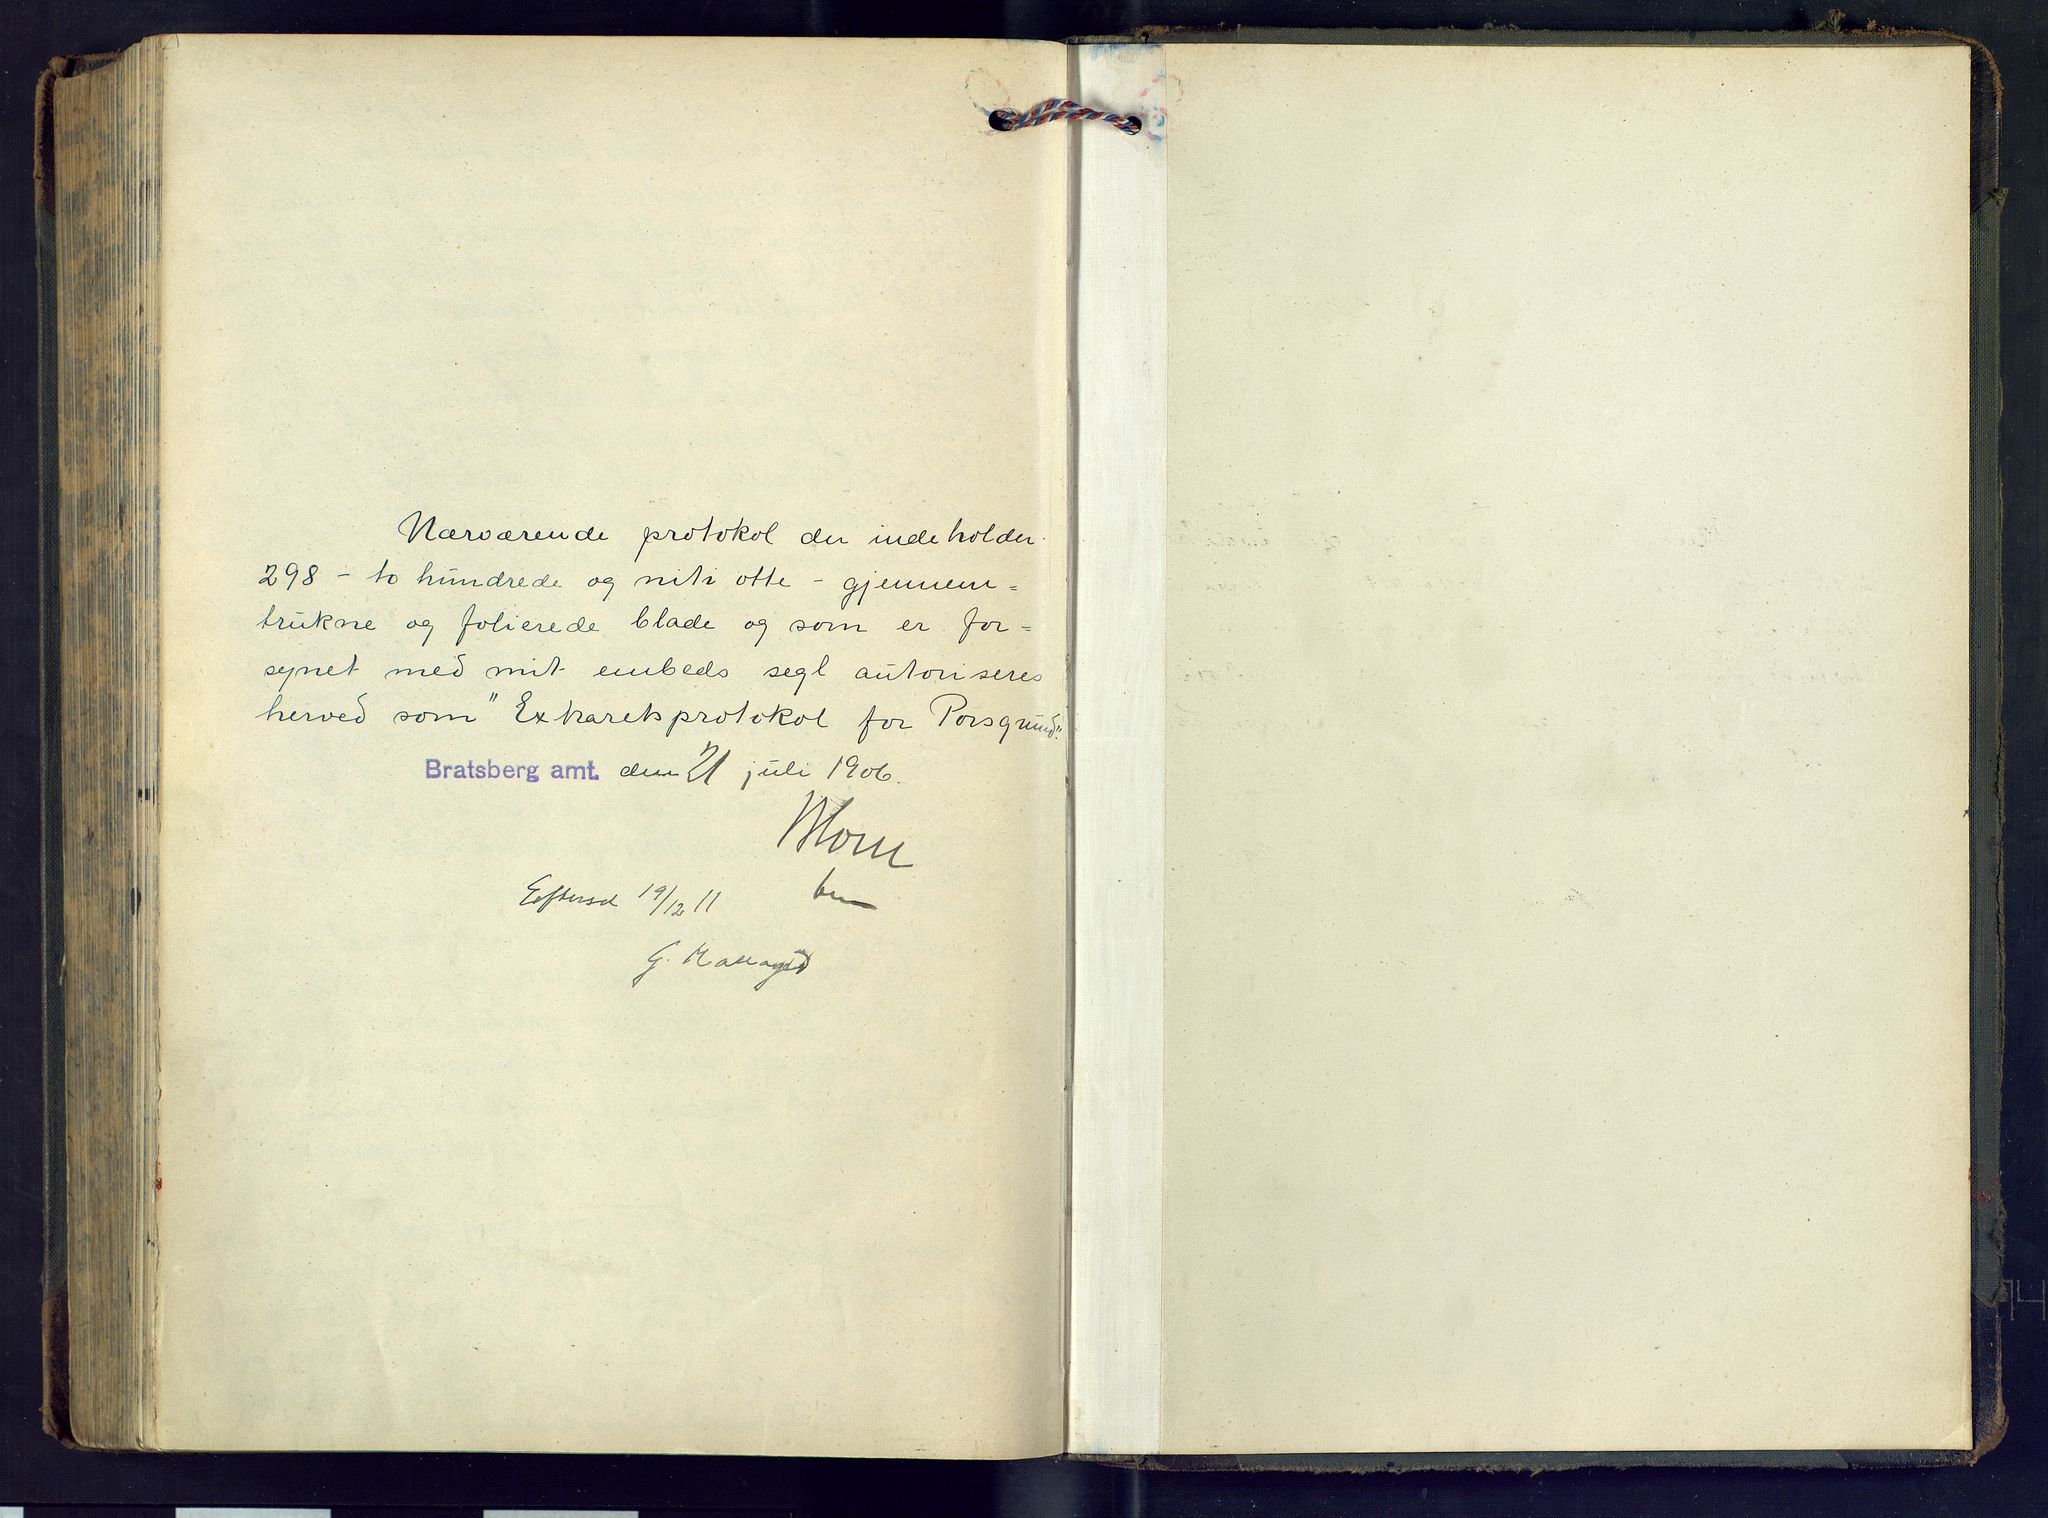 Nærværende protokol der indeholder
298 - to hundrede og niti otte - gjennem=
trukne og folierede blade og som er for-=
synet med mit embeds segl autoriseres
herved som "Extraretsprotokol for Porsgrund".
Bratsberg amt. den 21 juli 1906.
Eftersd 19/12 11
G.